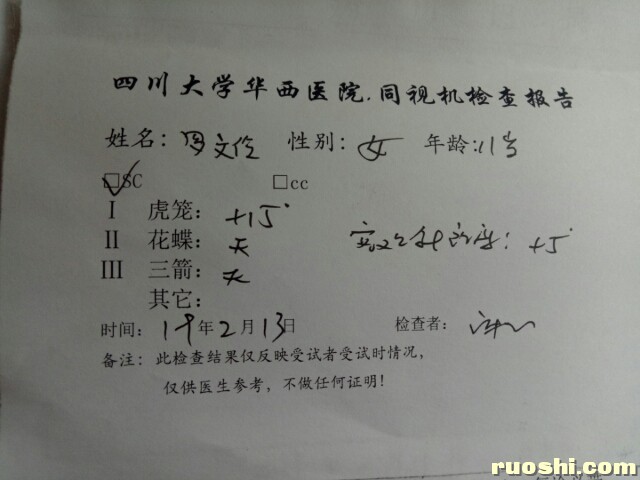 四川大学华西医院.同视机检查报告
姓名： 文 性别：女 年龄:11岁
□SC □cc
Ⅰ 虎笼： +15°
Ⅱ 花蝶： 无 ： +5°
Ⅲ 三箭： 无
其它：
时间： 19年2月13日 检查者：
备注：此检查结果仅反映受试者受试时情况，
仅供医生参考，不做任何证明！
ruoshi.com